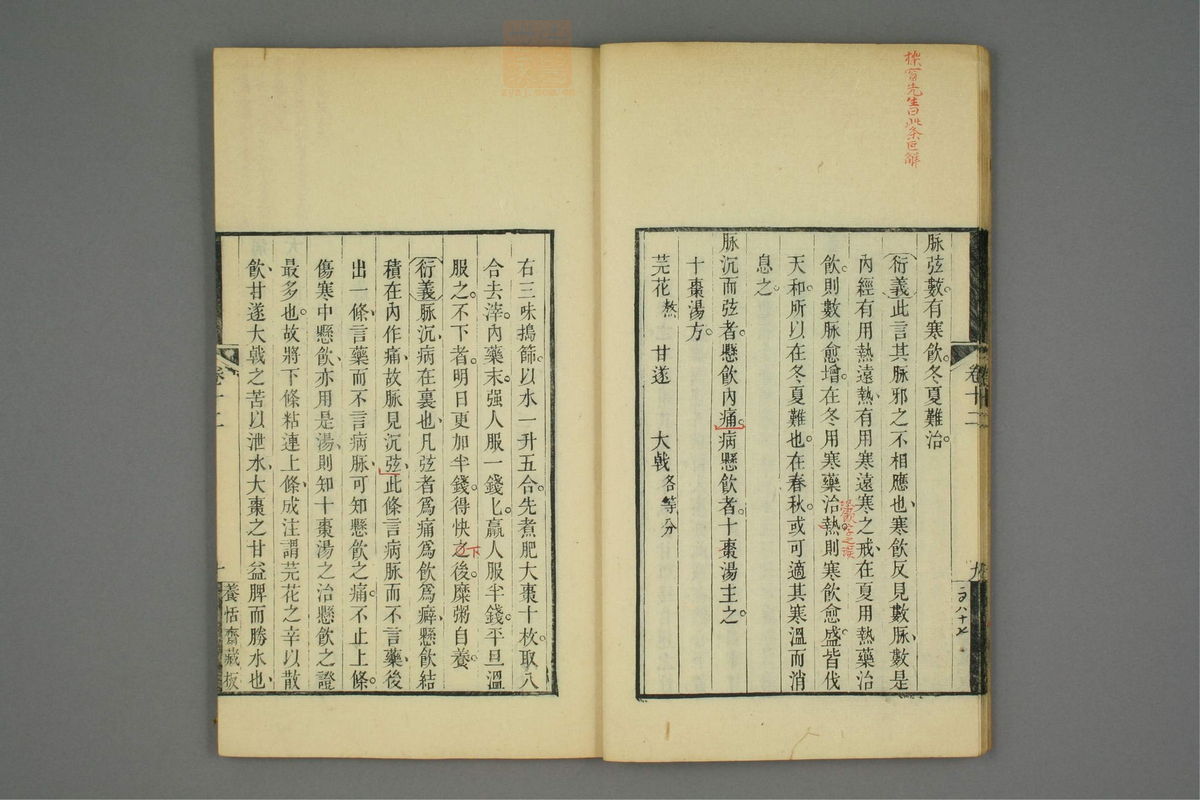 櫟窗先生曰此条叵解
脉弦數有寒飲冬夏難治
衍義此言其脉邪之不相應也寒飲反見數脉數是
內經有用熱遠熱有用寒遠寒之戒在夏用熱藥治
飲則數脉愈增在冬用寒藥治熱則寒飲愈盛皆伐
天和所以在冬夏難也在春秋或可適其寒溫而消
息之
脉沉而弦者懸飲內痛病懸飲者十棗湯主之
十棗湯方
芫花熬 甘遂 大戟各等分
卷十二 九
二百八十七
右三味搗篩以水一升五合先煮肥大棗十枚取八
合去滓內藥末强人服一錢匕羸人服半錢平旦溫
服之不下者明日更加半錢得快之後糜粥自養
下
衍義脉沉病在裏也凡弦者爲痛爲飲爲癖懸飲結
積在內作痛故脉見沉弦此條言病脉而不言藥後
出一條言藥而不言病脉可知懸飲之痛不止上條
傷寒中懸飲亦用是湯則知十棗湯之治懸飲之證
最多也故將下條粘連上條成注謂芫花之辛以散
飲甘遂大戟之苦以泄水大棗之甘益脾而勝水也
卷十二
養恬齋藏板